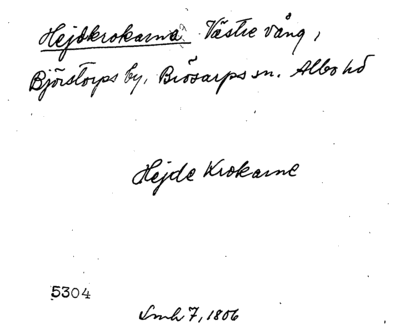 Hejdkrokarna Västre vång,
Björstorps by, Brösarps sn. Albo hd
Hejde Krokarne
5304
Lmh 7, 1806